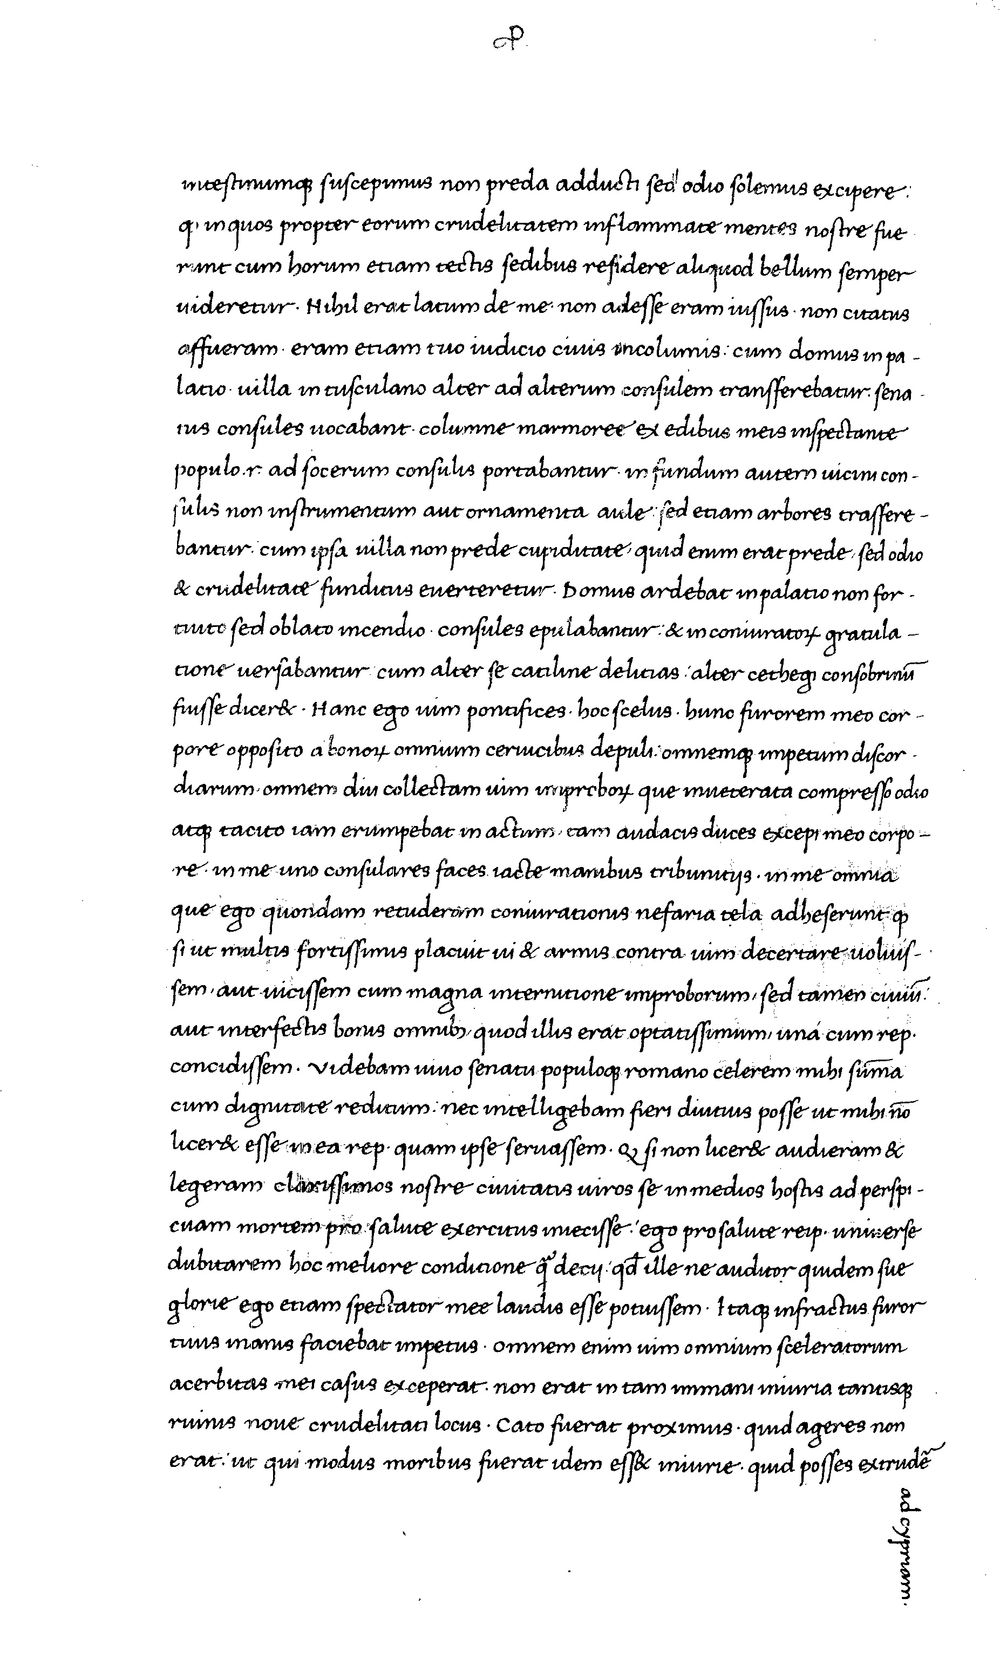 intestinumq; suscepimus non preda adducti sed odio solemus excipere:
q' in quos propter eorum crudelitatem inflammate mentes nostre fue
runt cum horum etiam tectis sedibus residere aliquod bellum semper
uideretur. Nihil erat latum de me. non adesse eram iussus. non citatus
affueram. eram etiam tuo iudicio ciuis incolumis: cum domus in pa-
latio. uilla in tusculano alter ad alterum consulem transferebatur. sena
tus consules uocabant. columne marmoree ex edibus meis inspectante
populo.r. ad socerum consulis portabantur. in fundum autem uicini con-
sulis non instrumentum aut ornamenta aule: sed etiam arbores trasfere-
bantur. cum ipsa uilla non prede cupiditate, quid enim erat prede, sed odio
& crudelitate funditus euerteretur. Domus ardebat in palatio non for-
tuito sed oblato incendio. consules epulabantur: & in coniuratoꝝ gratula-
tione uersabantur cum alter se catiline delitias: alter cethegi consobrinū
fuisse dicer&. Hanc ego uim pontifices. hoc scelus. hunc furorem meo cor-
pore opposito a bonoꝝ omnium ceruicibus depuli: omnemq; impetum discor-
diarum. omnem diu collectam uim improboꝝ que inueterata compresso odio
atq; tacito iam erumpebat in actum, tam audacis duces excepi meo corpo-
re. in me uno consulares faces iacte manibus tribunitijs. in me omnia
que ego quondam retuderam coniurationis nefaria tela adheserunt. q;
si ut multis fortissimis placuit ui & armis contra uim decertare uoluis-
sem, aut uicissem cum magna internitione improborum, sed tamen ciuiū:
aut interfectis bonis omnibȝ, quod illis erat optatissimum, una cum rep.
concidissem. Videbam uiuo senatu populoq; romano celerem mihi sūma
cum dignitate reditum: nec intelligebam fieri diutius posse ut mihi nō
licer& esse in ea rep. quam ipse seruassem. Q; si non licer& audieram &
legeram clarissimos nostre ciuitatis uiros se in medios hostis ad perspi-
cuam mortem pro salute exercitus iniecisse: ego pro salute reip. uniuerse
dubitarem hoc meliore condicione q̄ decij: qđ ille ne auditor quidem sue
glorie ego etiam spectator mee laudis esse potuissem. Itaq; infractus furor
tuus inanis faciebat impetus. omnem enim uim omnium sceleratorum
acerbitas mei casus exceperat. non erat in tam immani iniuria tantisq;
ruinis noue crudelitati locus. Cato fuerat proximus. quid ageres non
erat: ut qui modus moribus fuerat idem ess& iniurie. quid posses extrudē
ad cypriam.